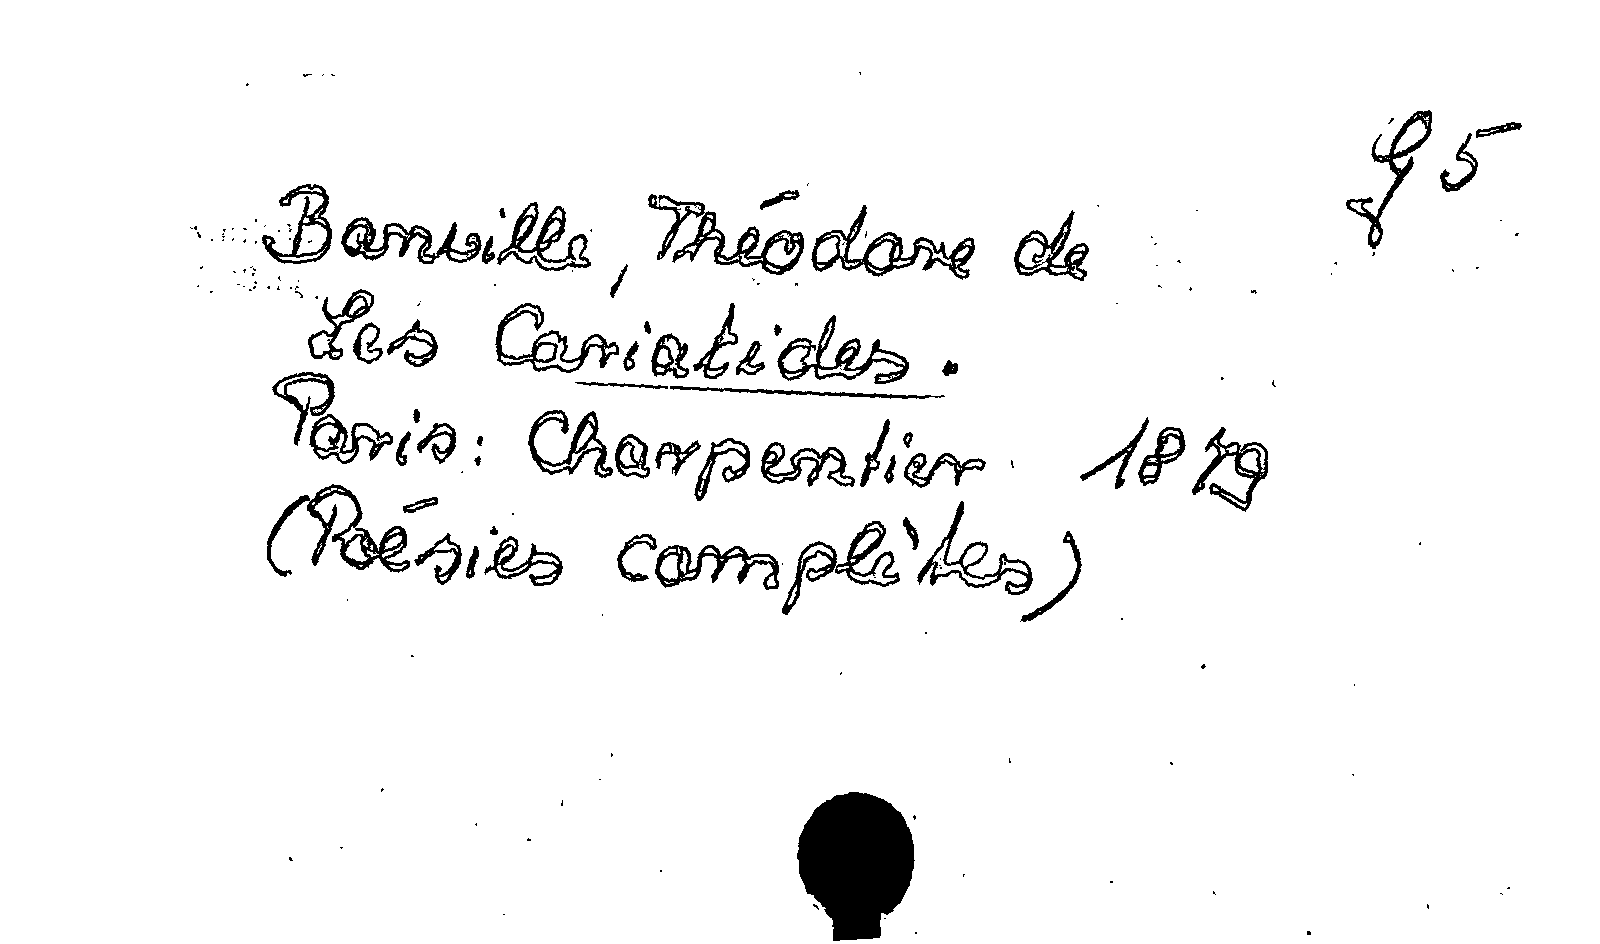 G 5
Banville, Théodore de
Les Cariatides.
Paris: Charpentier 1879
(Poésies complètes)